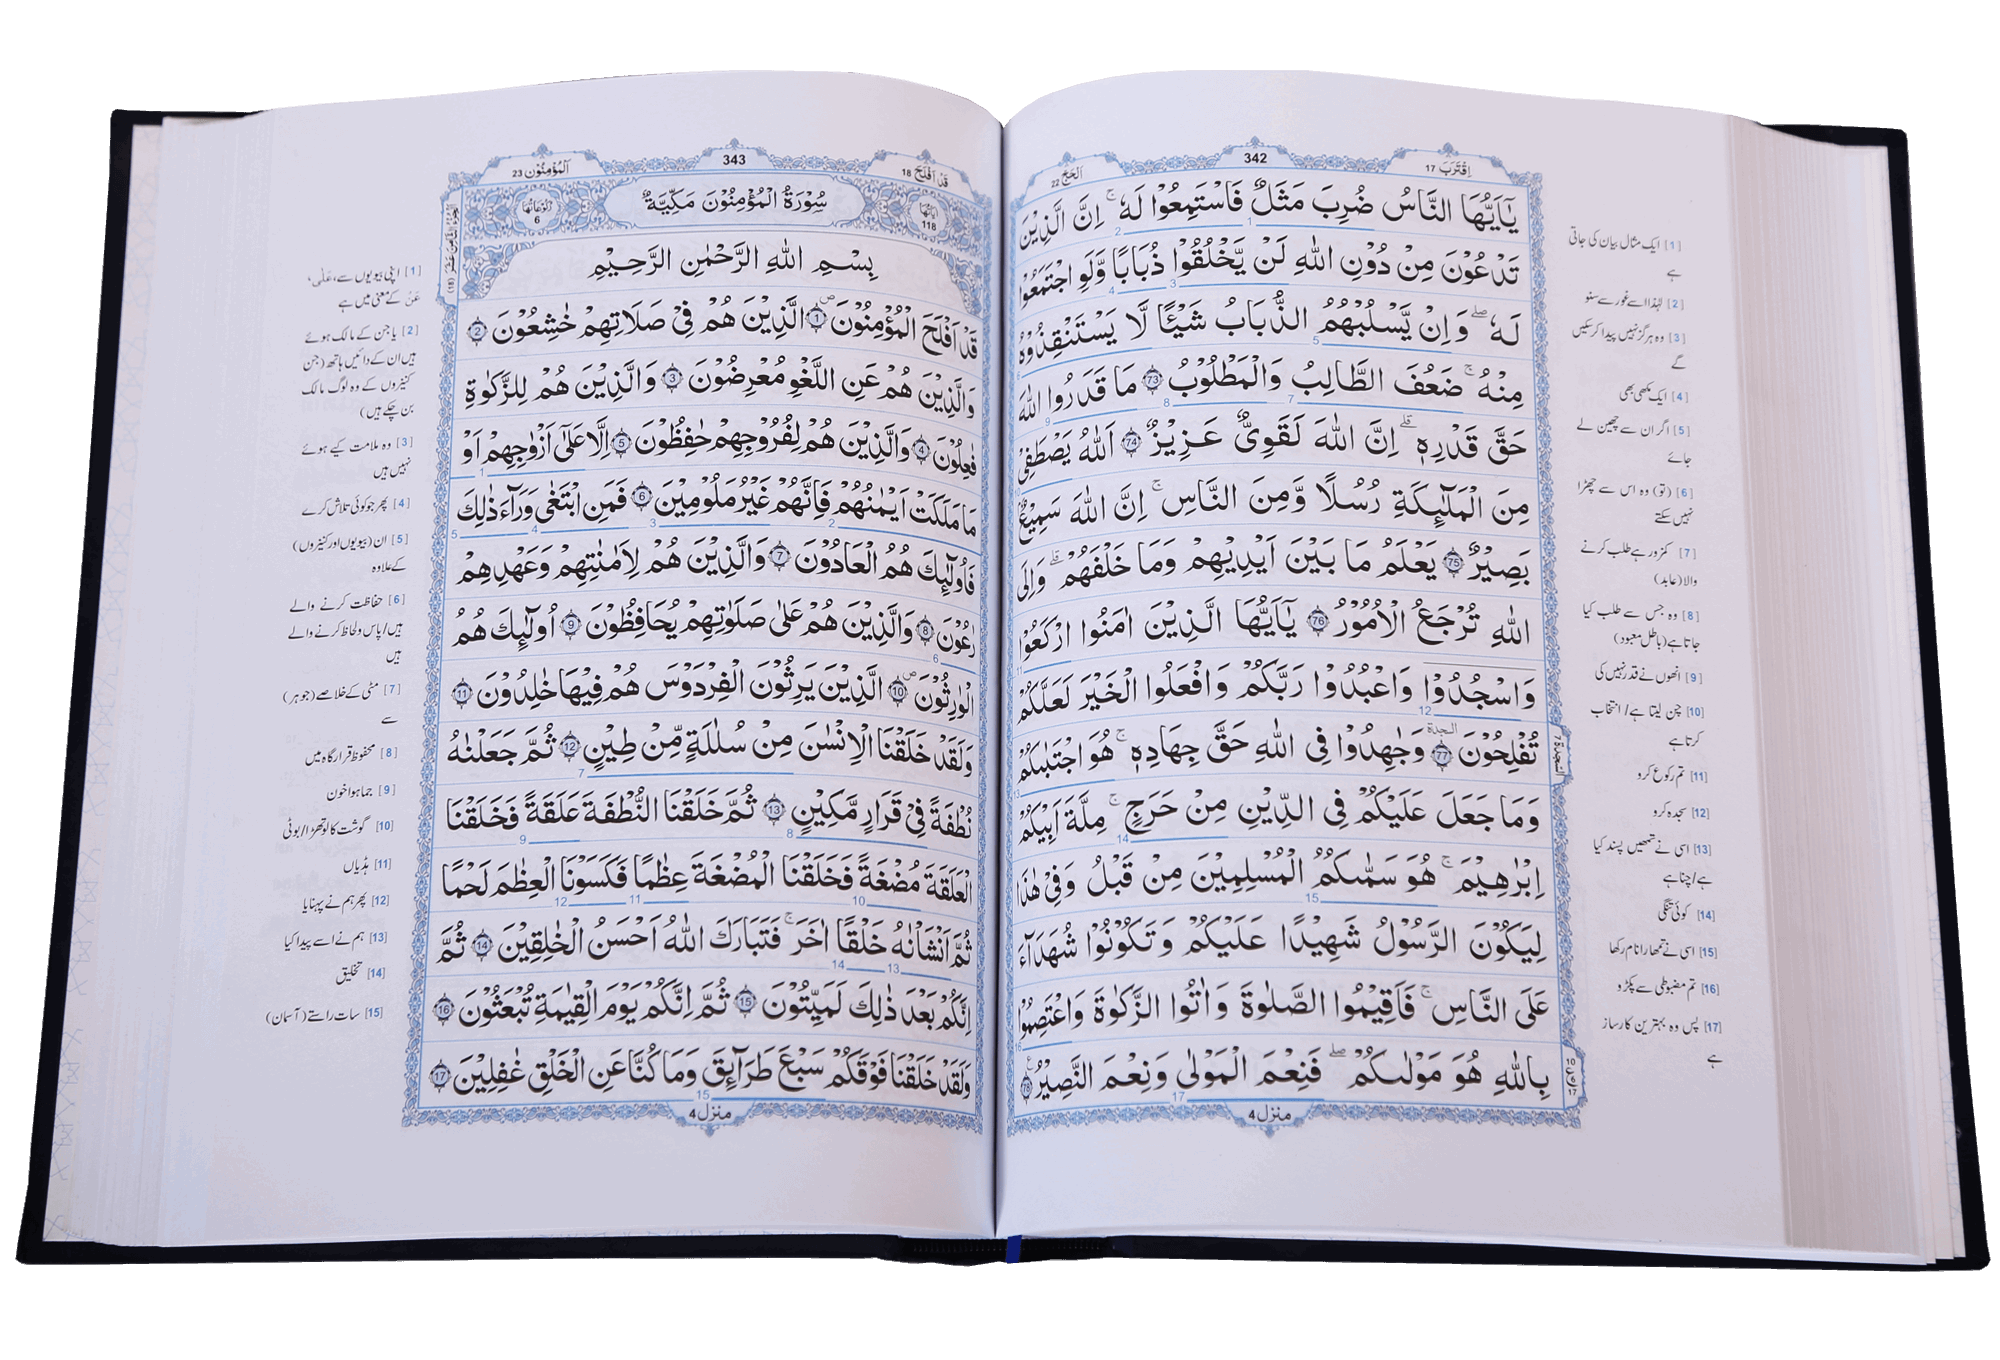 اِقْتَرَبَ 17
342
اَلْحَجّ 22
يٰۤاَيُّهَا النَّاسُ ضُرِبَ مَثَلٌ فَاسْتَمِعُوْا لَهٗ ؕ اِنَّ الَّذِيْنَ
تَدْعُوْنَ مِنْ دُوْنِ اللّٰهِ لَنْ يَّخْلُقُوْا ذُبَابًا وَّلَوِ اجْتَمَعُوْا
لَهٗ ؕ وَاِنْ يَّسْلُبْهُمُ الذُّبَابُ شَيْـًٔا لَّا يَسْتَنْقِذُوْهُ
مِنْهُ ؕ ضَعُفَ الطَّالِبُ وَالْمَطْلُوْبُ 73 مَا قَدَرُوا اللّٰهَ
حَقَّ قَدْرِهٖ ؕ اِنَّ اللّٰهَ لَقَوِيٌّ عَزِيْزٌ 74 اَللّٰهُ يَصْطَفِيْ
مِنَ الْمَلٰٓئِكَةِ رُسُلًا وَّمِنَ النَّاسِ ؕ اِنَّ اللّٰهَ سَمِيْعٌۢ
بَصِيْرٌ 75 يَعْلَمُ مَا بَيْنَ اَيْدِيْهِمْ وَمَا خَلْفَهُمْ ؕ وَاِلَى
اللّٰهِ تُرْجَعُ الْاُمُوْرُ 76 يٰۤاَيُّهَا الَّذِيْنَ اٰمَنُوا ارْكَعُوْا
وَاسْجُدُوْا وَاعْبُدُوْا رَبَّكُمْ وَافْعَلُوا الْخَيْرَ لَعَلَّكُمْ
تُفْلِحُوْنَ 77 وَجٰهِدُوْا فِي اللّٰهِ حَقَّ جِهَادِهٖ ؕ هُوَ اجْتَبٰىكُمْ
وَمَا جَعَلَ عَلَيْكُمْ فِي الدِّيْنِ مِنْ حَرَجٍ ؕ مِلَّةَ اَبِيْكُمْ
اِبْرٰهِيْمَ ؕ هُوَ سَمّٰىكُمُ الْمُسْلِمِيْنَ مِنْ قَبْلُ وَفِيْ هٰذَا
لِيَكُوْنَ الرَّسُوْلُ شَهِيْدًا عَلَيْكُمْ وَتَكُوْنُوْا شُهَدَآءَ
عَلَى النَّاسِ ؕ فَاَقِيْمُوا الصَّلٰوةَ وَاٰتُوا الزَّكٰوةَ وَاعْتَصِمُوْا
بِاللّٰهِ هُوَ مَوْلٰىكُمْ ؕ فَنِعْمَ الْمَوْلٰى وَنِعْمَ النَّصِيْرُ 78
منزل 4
[1] ایک مثال بیان کی جاتی
ہے
[2] لہٰذا اسے غور سے سنو
[3] وہ ہرگز نہیں پیدا کرسکیں
گے
[4] ایک مکھی بھی
[5] اگر ان سے چھین لے
جائے
[6] (تو) وہ اس سے چھڑا
نہیں سکتے
[7] کمزور ہے طلب کرنے
والا (عابد)
[8] وہ جس سے طلب کیا
جاتا ہے (باطل معبود)
[9] انھوں نے قدر نہیں کی
[10] چن لیتا ہے/ انتخاب
کرتا ہے
[11] تم رکوع کرو
[12] سجدہ کرو
[13] اسی نے تمھیں پسند کیا
ہے/چنا ہے
[14] کوئی تنگی
[15] اسی نے تمھارا نام رکھا
[16] تم مضبوطی سے پکڑو
[17] پس وہ بہترین کارساز
ہے
قَدْ اَفْلَحَ 18
343
اَلْمُؤْمِنُوْن 23
اٰيَاتُهَا 118
سُوْرَةُ الْمُؤْمِنُوْنَ مَكِّيَّةٌ
رُكُوْعَاتُهَا 6
بِسْمِ اللّٰهِ الرَّحْمٰنِ الرَّحِيْمِ
قَدْ اَفْلَحَ الْمُؤْمِنُوْنَ 1 الَّذِيْنَ هُمْ فِيْ صَلَاتِهِمْ خٰشِعُوْنَ 2
وَالَّذِيْنَ هُمْ عَنِ اللَّغْوِ مُعْرِضُوْنَ 3 وَالَّذِيْنَ هُمْ لِلزَّكٰوةِ
فٰعِلُوْنَ 4 وَالَّذِيْنَ هُمْ لِفُرُوْجِهِمْ حٰفِظُوْنَ 5 اِلَّا عَلٰٓى اَزْوَاجِهِمْ اَوْ
مَا مَلَكَتْ اَيْمٰنُهُمْ فَاِنَّهُمْ غَيْرُ مَلُوْمِيْنَ 6 فَمَنِ ابْتَغٰى وَرَآءَ ذٰلِكَ
فَاُولٰٓئِكَ هُمُ الْعَادُوْنَ 7 وَالَّذِيْنَ هُمْ لِاَمٰنٰتِهِمْ وَعَهْدِهِمْ
رٰعُوْنَ 8 وَالَّذِيْنَ هُمْ عَلٰى صَلَوٰتِهِمْ يُحَافِظُوْنَ 9 اُولٰٓئِكَ هُمُ
الْوٰرِثُوْنَ 10 الَّذِيْنَ يَرِثُوْنَ الْفِرْدَوْسَ هُمْ فِيْهَا خٰلِدُوْنَ 11
وَلَقَدْ خَلَقْنَا الْاِنْسٰنَ مِنْ سُلٰلَةٍ مِّنْ طِيْنٍ 12 ثُمَّ جَعَلْنٰهُ
نُطْفَةً فِيْ قَرَارٍ مَّكِيْنٍ 13 ثُمَّ خَلَقْنَا النُّطْفَةَ عَلَقَةً فَخَلَقْنَا
الْعَلَقَةَ مُضْغَةً فَخَلَقْنَا الْمُضْغَةَ عِظٰمًا فَكَسَوْنَا الْعِظٰمَ لَحْمًا
ثُمَّ اَنْشَاْنٰهُ خَلْقًا اٰخَرَ ؕ فَتَبَارَكَ اللّٰهُ اَحْسَنُ الْخٰلِقِيْنَ 14 ثُمَّ
اِنَّكُمْ بَعْدَ ذٰلِكَ لَمَيِّتُوْنَ 15 ثُمَّ اِنَّكُمْ يَوْمَ الْقِيٰمَةِ تُبْعَثُوْنَ 16
وَلَقَدْ خَلَقْنَا فَوْقَكُمْ سَبْعَ طَرَآئِقَ وَمَا كُنَّا عَنِ الْخَلْقِ غٰفِلِيْنَ 17
منزل 4
[1] اپنی بیویوں سے، عَلٰى،
عَنْ کے معنی میں ہے
[2] یا جن کے مالک ہوئے
ہیں ان کے دائیں ہاتھ (جن
کنیزوں کے وہ لوگ مالک
بن چکے ہیں)
[3] وہ ملامت کیے ہوئے
نہیں ہیں
[4] پھر جو کوئی تلاش کرے
[5] ان (بیویوں اور کنیزوں)
کے علاوہ
[6] حفاظت کرنے والے
ہیں/ پاس ولحاظ کرنے والے
ہیں
[7] مٹی کے خلاصے (جوہر)
سے
[8] محفوظ قرارگاہ میں
[9] جما ہوا خون
[10] گوشت کا لوتھڑا/بوٹی
[11] ہڈیاں
[12] پھر ہم نے پہنایا
[13] ہم نے اسے پیدا کیا
[14] تخلیق
[15] سات راستے (آسمان)